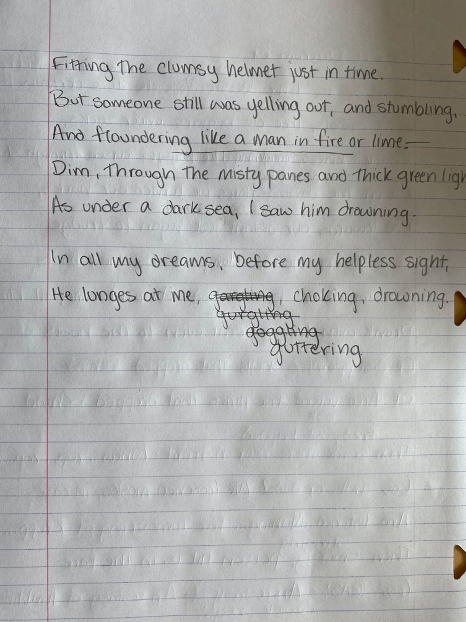 Fitting the clumsy helmet just in time.
But someone still was yelling out, and stumbling,
And floundering like a man in fire or lime.—
Dim, through the misty panes and thick green ligh
As under a dark sea, I saw him drowning.
In all my dreams, before my helpless sight,
He lunges at me, gargling, choking, drowning.
gurgling
goggling
guttering